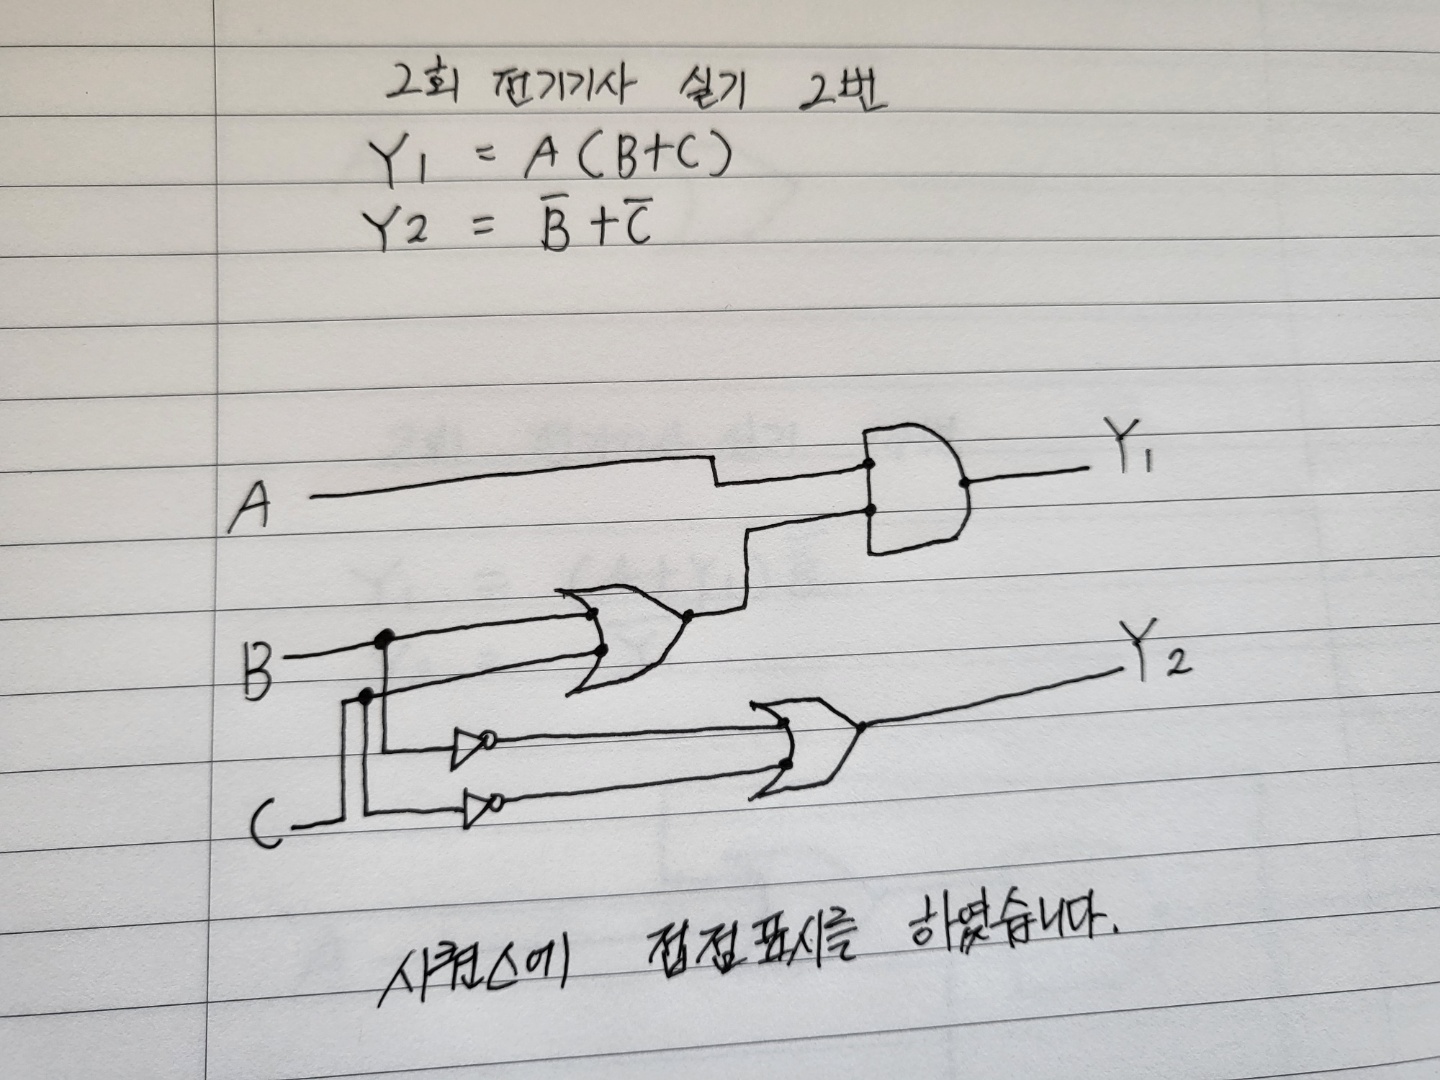 2회 전기기사 실기 2번
Y1 = A(B+C)
Y2 = B̅+C̅
A
Y1
B
Y2
C
시퀀스에 접점표시를 하였습니다.